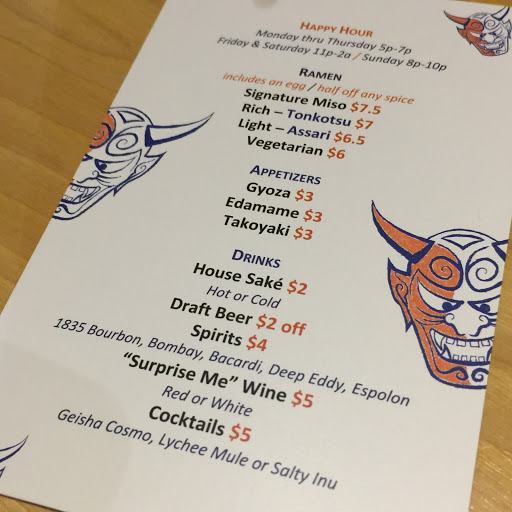 Happy Hour
Monday thru Thursday 5p-7p
Friday & Saturday 11p-2a / Sunday 8p-10p
Ramen
includes an egg / half off any spice
Signature Miso $7.5
Rich – Tonkotsu $7
Light – Assari $6.5
Vegetarian $6
Appetizers
Gyoza $3
Edamame $3
Takoyaki $3
Drinks
House Saké $2
Hot or Cold
Draft Beer $2 off
Spirits $4
1835 Bourbon, Bombay, Bacardi, Deep Eddy, Espolon
“Surprise Me” Wine $5
Red or White
Cocktails $5
Geisha Cosmo, Lychee Mule or Salty Inu